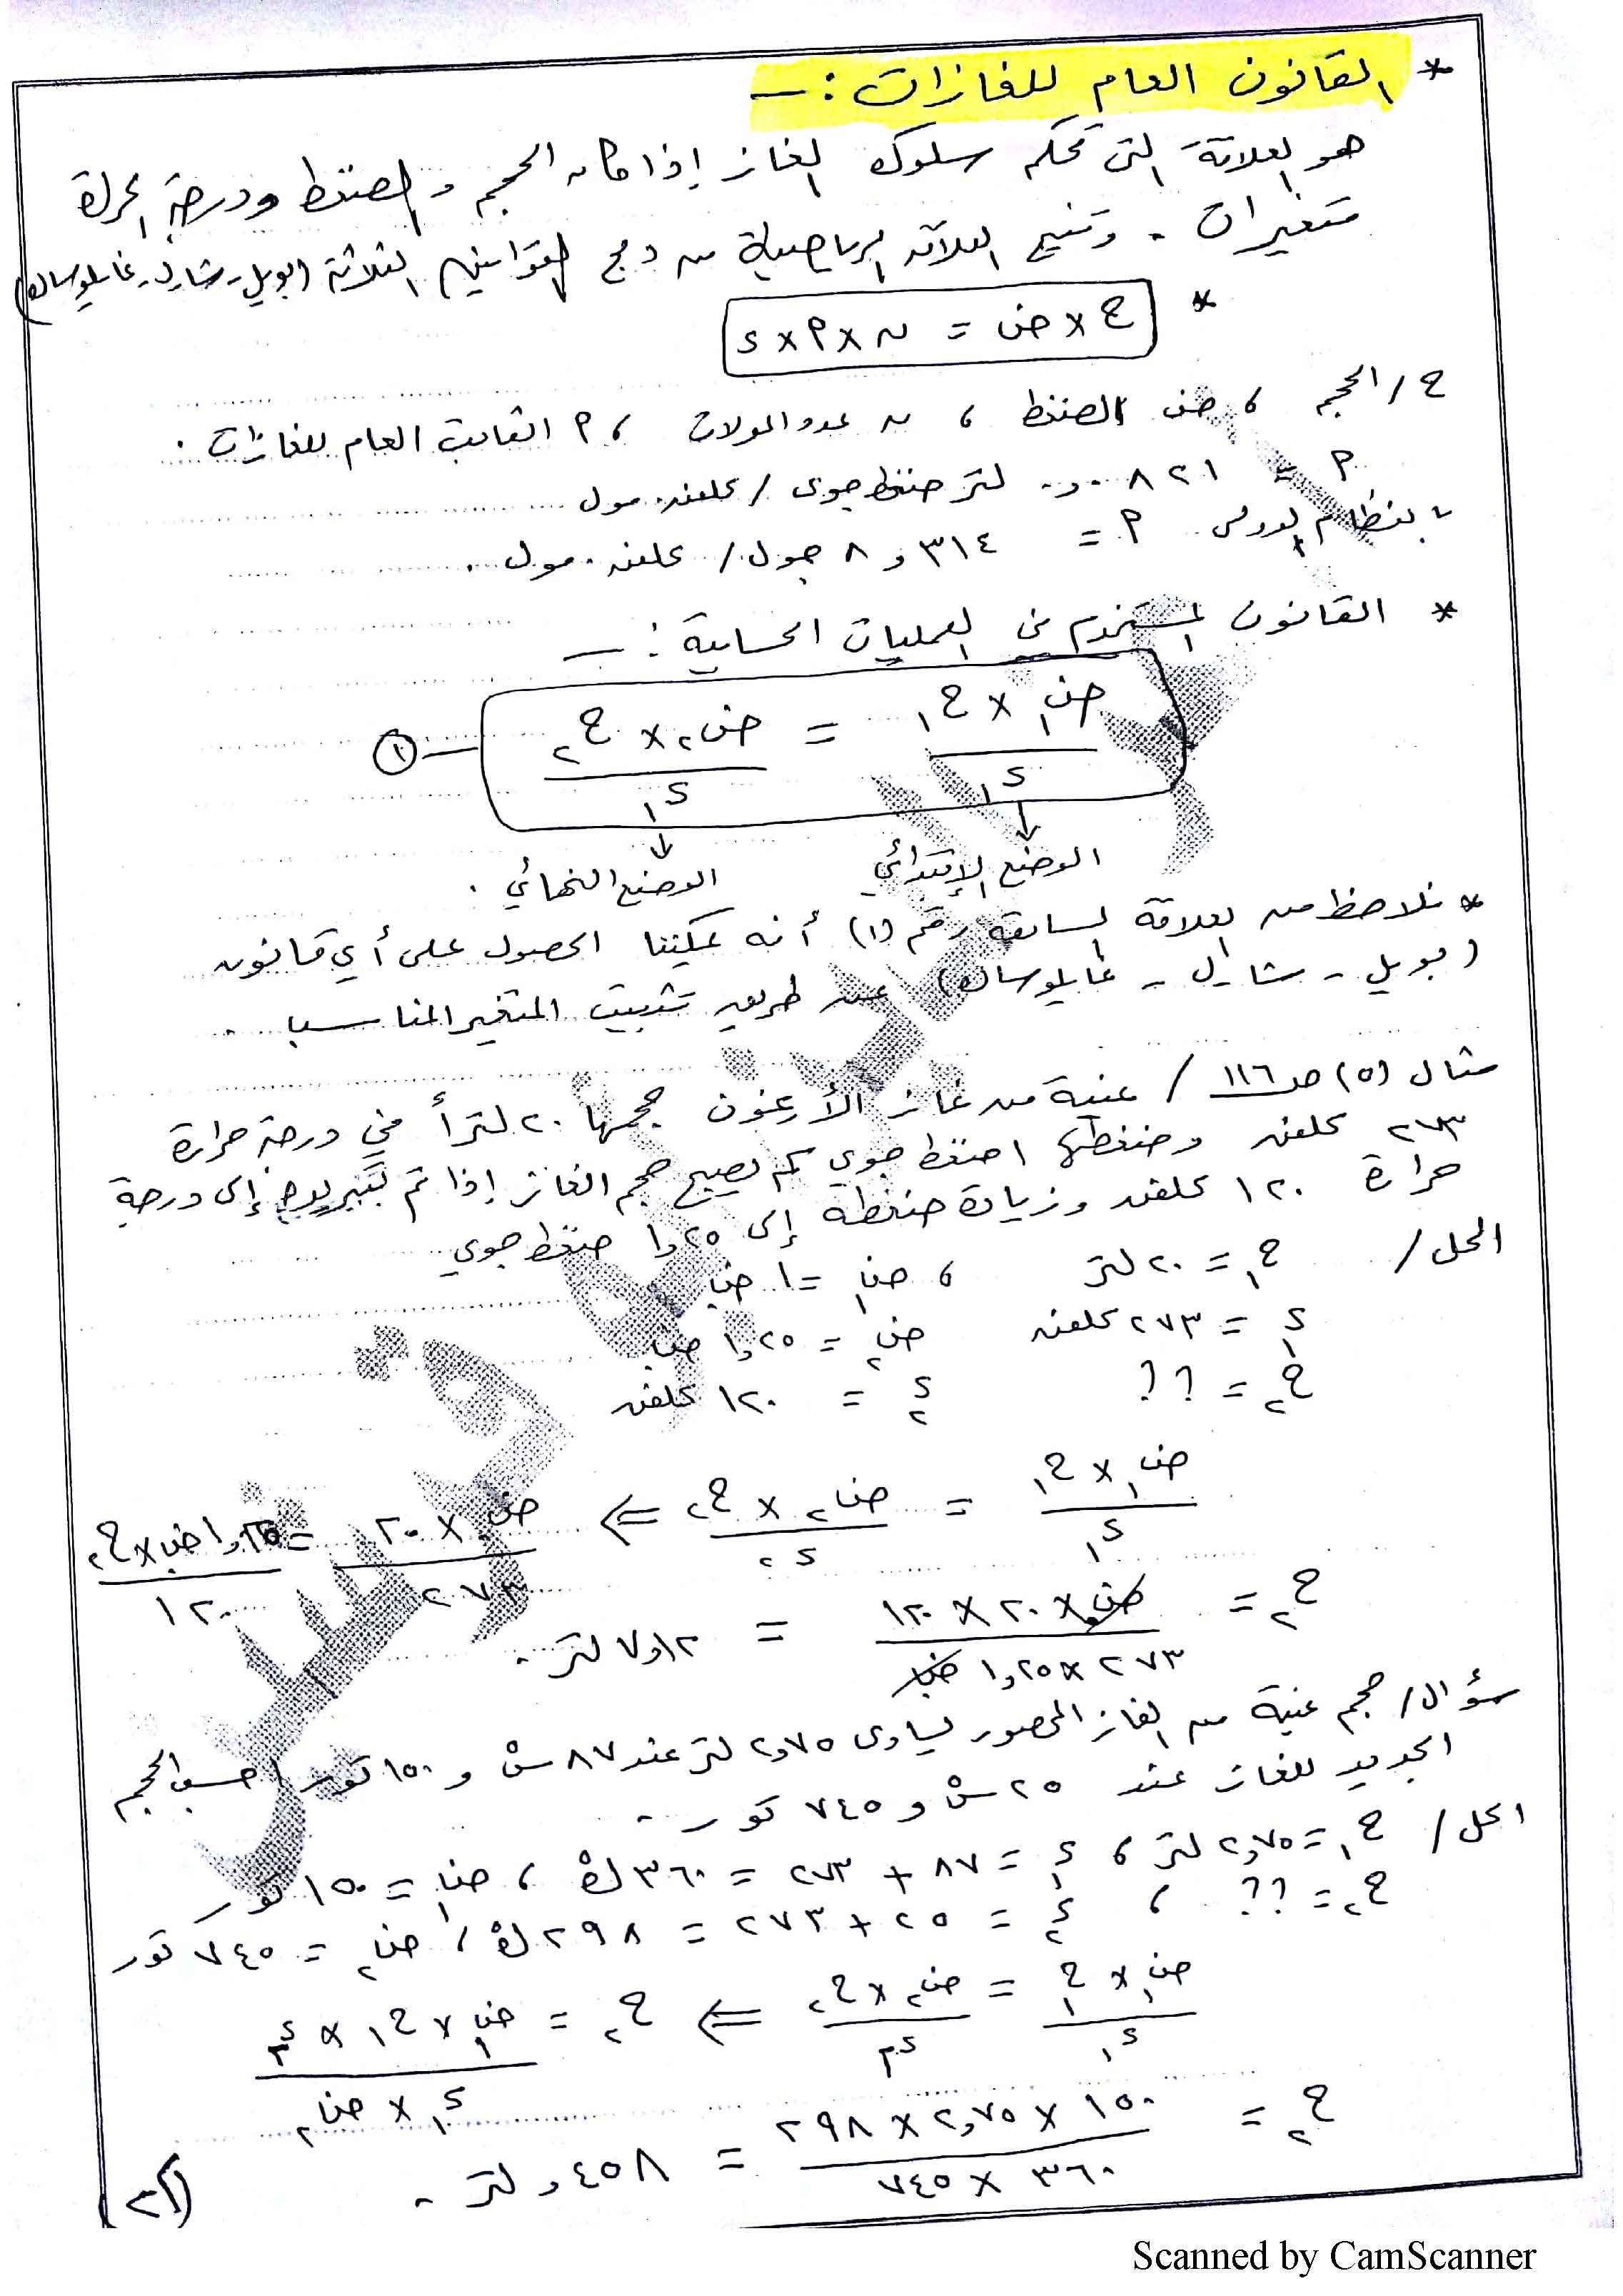 * القانون العام للغازات : ـ
هو العلاقة التي تحكم سلوك الغاز إذا كان الحجم و الضغط ودرجة الحرارة
متغيرات . وتنتج العلاقة الرياضية من دمج القوانين الثلاثة (بويل - شارل - غايلوساك)
* ح × ض = ن × م × د
ح / الحجم ، ض الضغط ، ن عدد المولات ، م الثابت العام للغازات .
م = ٠,٠٨٢١ لتر ضغط جوي / كلفن . مول
بالنظام الدولي م = ٨,٣١٤ جول / كلفن . مول .
* القانون المستخدم في العمليات الحسابية : ـ
ض١ × ح١ / د١ = ض٢ × ح٢ / د١ — ①
↓ الوضع الإبتدائي ↓ الوضع النهائي .
* نلاحظ من العلاقة السابقة رقم (١) أنه يمكننا الحصول على أي قانون
(بويل - شارل - غايلوساك) عن طريق تثبيت المتغير المناسب .
مثال (٥) ص ١١٦ / عينة من غاز الأرغون حجمها ٢٠ لتراً في درجة حرارة
٢٧٣ كلفن وضغطها ١ ضغط جوي كم يصبح حجم الغاز إذا تم تبريده إلى درجة
حرارة ١٢٠ كلفن وزيادة ضغطه إلى ١,٢٥ ضغط جوي
الحل / ح١ = ٢٠ لتر ، ض١ = ١ ض
د١ = ٢٧٣ كلفن ض٢ = ١,٢٥ ض
ح٢ = ؟؟ د٢ = ١٢٠ كلفن
ض١ × ح١ / د١ = ض٢ × ح٢ / د٢ ⇐ ض × ٢٠ / ٢٧٣ = ١,٢٥ ض × ح٢ / ١٢٠
ح٢ = ض × ٢٠ × ١٢٠ / ٢٧٣ × ١,٢٥ ض = ٧,١٢ لتر .
سؤال / حجم عينة من الغاز المحصور يساوي ٢,٧٥ لتر عند ٨٧ س° و ١٥٠ تور احسب الحجم
الجديد للغاز عند ٢٥ س° و ٧٤٥ تور .
الحل / ح١ = ٢,٧٥ لتر ، د١ = ٨٧ + ٢٧٣ = ٣٦٠ ك° ، ض١ = ١٥٠ تور
ح٢ = ؟؟ ، د٢ = ٢٥ + ٢٧٣ = ٢٩٨ ك° ، ض٢ = ٧٤٥ تور
ض١ × ح١ / د١ = ض٢ × ح٢ / د٢ ⇐ ح٢ = ض١ × ح١ × د٢ / د١ × ض٢
ح٢ = ١٥٠ × ٢,٧٥ × ٢٩٨ / ٣٦٠ × ٧٤٥ = ,٤٥٨ لتر .
Scanned by CamScanner